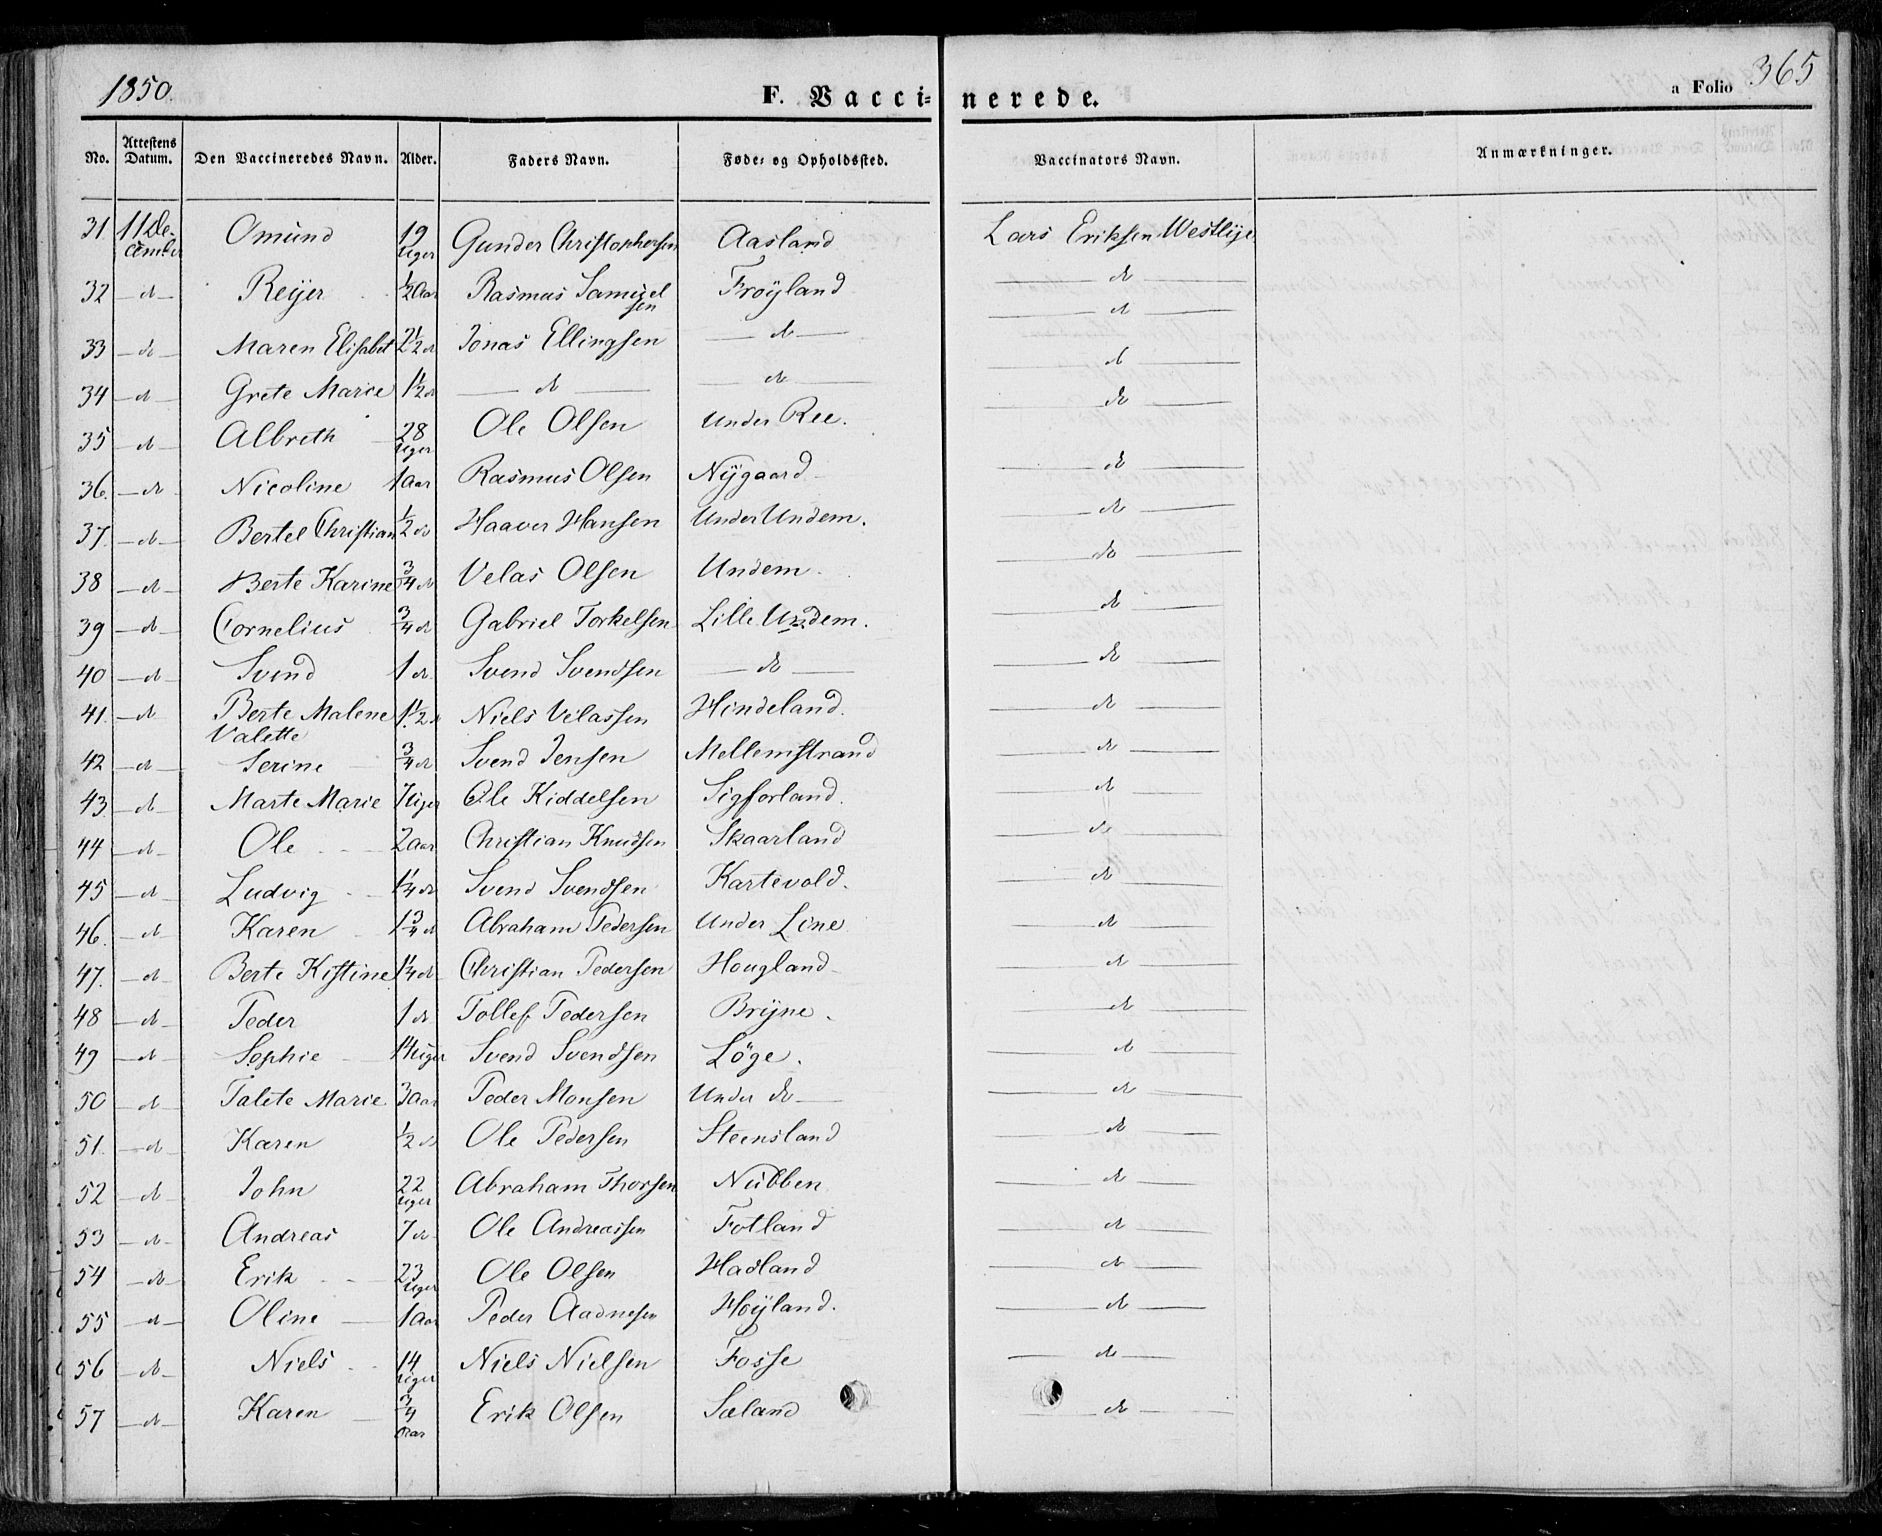 1850. F. Vacci= nerede. a Folio 365
No. Attestens Datum. Den Vaccineredes Navn. Alder. Faders Navn. Føde= og Opholdssted. Vaccinators Navn. Anmærkninger.
31 11 De-cember Omund 19 Uger Gunder Christophersen Aasland Lars Eriksen Westlye
32 — d — Reyer ½ Aar Rasmus Samuelsen Frøyland — d —
33 — do — Maren Elisabet 2½ d Jonas Ellingsen — d — — d —
34 — d — Grete Marie 1½ d — d — — d — — d —
35 — d — Albreth 28 Uger Ole Olsen Under Ree. — do —
36. — do — Nicoline 1 Aar Rasmus Olsen Nygaard — do —
37. — d — Bertel Christian ½ do Haaver Hansen Under Undem. — do —
38 — d — Berte Karine ¾ d Velas Olsen Undem. — do —
39 — d — Cornelius ¾ d Gabriel Torkelsen Lille Undem. — do —
40 — d — Svend 1 d. Svend Svendsen — do — — do —
41. — d Berte Malene Valette 1½ d Niels Velassen Hindeland. — d —
42 — d — Serine ¾ d Svend Jensen Mellemstrand — d —
43 — d — Marte Marie 7 Uger Ole Kiddelsen Sigforland. — d —
44 — d — Ole 2 Aar Christian Knudsen Skaarland — do —
45 — d — Ludvig 1¼ do Svend Svendsen Kartevold. — d —
46. — d — Karen 1¾ d Abraham Pedersen Under Line — d —
47. — d Berte Kistine 1¼ d Christian Pedersen Hougland — d —
48 — d — Peder 1 do Tollef Pedersen Bryne. — do —
49 — d — Sophie 14 Uger Svend Svendsen Løge. — d —
50 — d — Talete Marie 3 Aar Peder Monsen Under do — — d —
51. — d — Karen ½ d Ole Pedersen Steensland — do —
52 — d — John 22 Uger Abraham Thorsen Nubben — d —
53 — d — Andreas 7 d Ole Andreassen Fotland — d —
54 — do — Erik 23 Uger Ole Olsen Hadland — do —
55 — d — Oline 1 Aar Peder Aadnesen Høyland. — d —
56 — d — Niels 14 Uger Niels Nielsen Fosse — d —
57 — d — Karen ¾ Aar Erik Olsen Sæland — do —